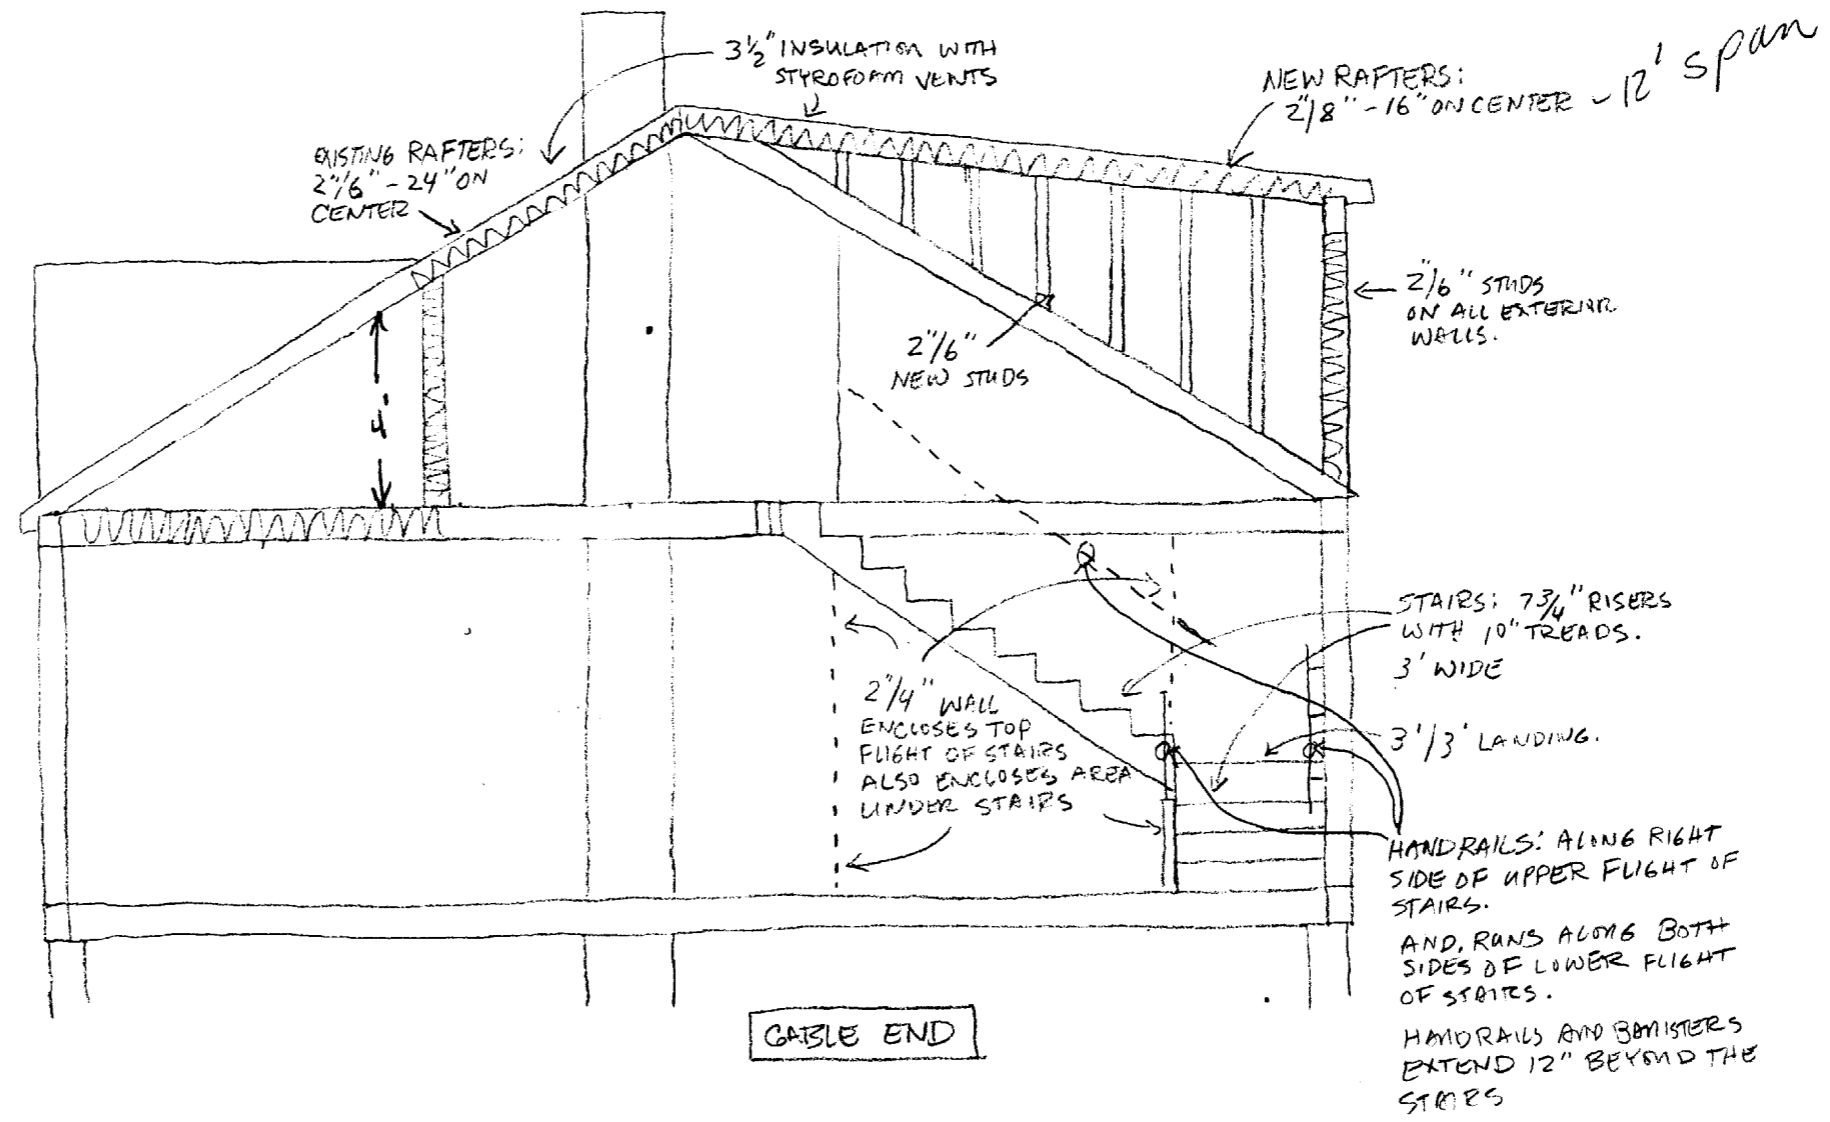 3½" INSULATION WITH
STYROFOAM VENTS
NEW RAFTERS:
2"/8" - 16" ON CENTER - 12' span
EXISTING RAFTERS:
2"/6" - 24" ON
CENTER
2"/6" STUDS
ON ALL EXTERIOR
WALLS.
2"/6"
NEW STUDS
4'
STAIRS: 7¾" RISERS
WITH 10" TREADS.
3' WIDE
2"/4" WALL
ENCLOSES TOP
FLIGHT OF STAIRS
ALSO ENCLOSES AREA
UNDER STAIRS
3'/3' LANDING.
HANDRAILS: ALONG RIGHT
SIDE OF UPPER FLIGHT OF
STAIRS.
AND, RUNS ALONG BOTH
SIDES OF LOWER FLIGHT
OF STAIRS.
HANDRAILS AND BANISTERS
EXTEND 12" BEYOND THE
STAIRS
GABLE END